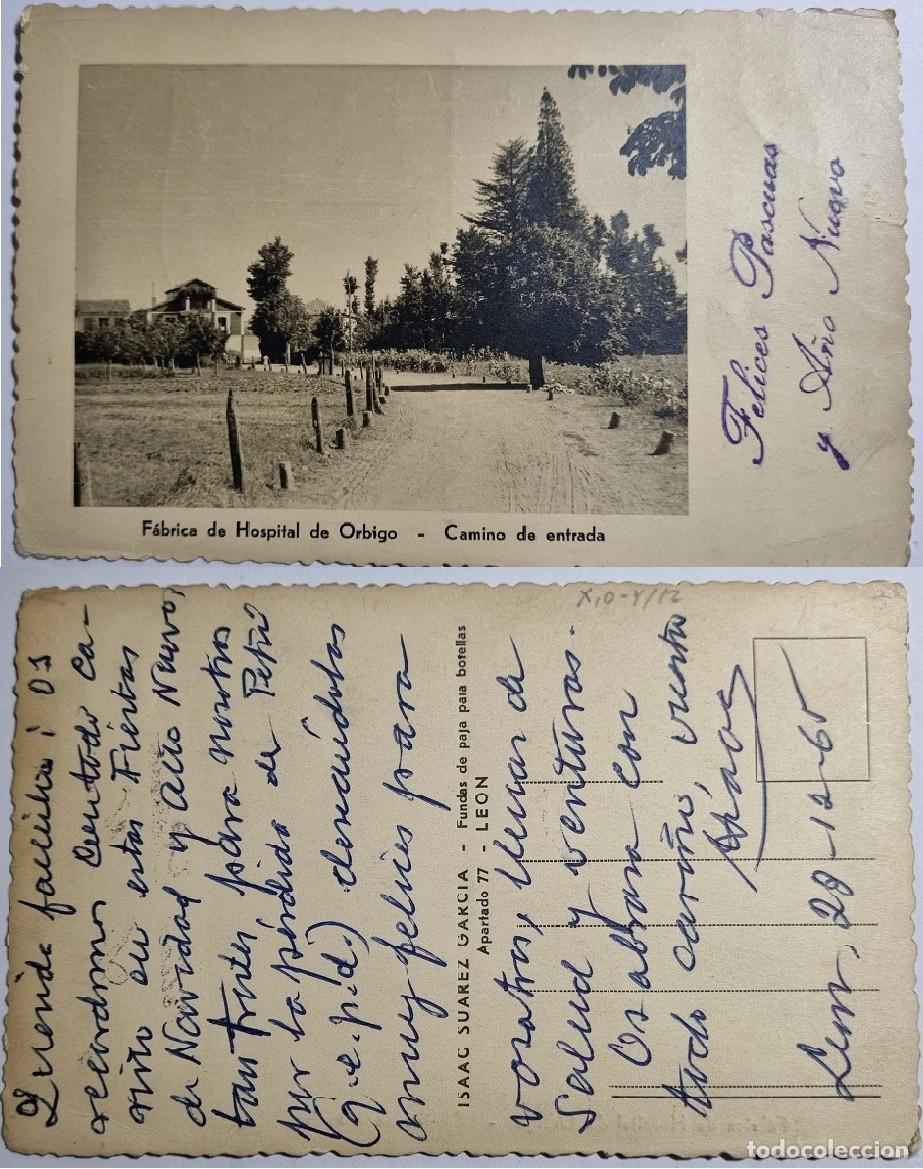 Felices Pascuas
y Año Nuevo
Fábrica de Hospital de Orbigo - Camino de entrada
Querida familia: os
recordamos con todo ca-
riño en estas Fiestas
de Navidad y Año Nuevo,
tan tristes para nosotros
por la pérdida de Petri
(q.e.p.d.) deseándolas
muy felices para
ISAAC SUAREZ GARCIA - Fundas de paja para botellas
Apartado 77 - LEON
vosotros, llenas de
salud y venturas.
Os abraza con
todo cariño, vuestro
Isaac
León, 28-12-65
todocoleccion